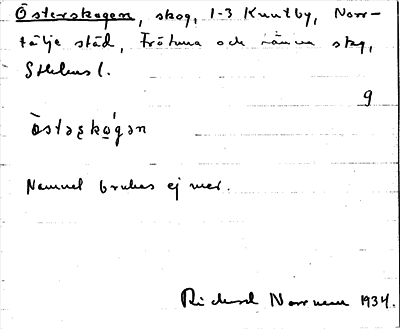 Österskogen, skog, 1-3 Knutby, Norr-
tälje stad, Frötuna och Länna skg,
Sthlms l.
9
Namnet brukas ej mer.
Rickard Norrman 1934.